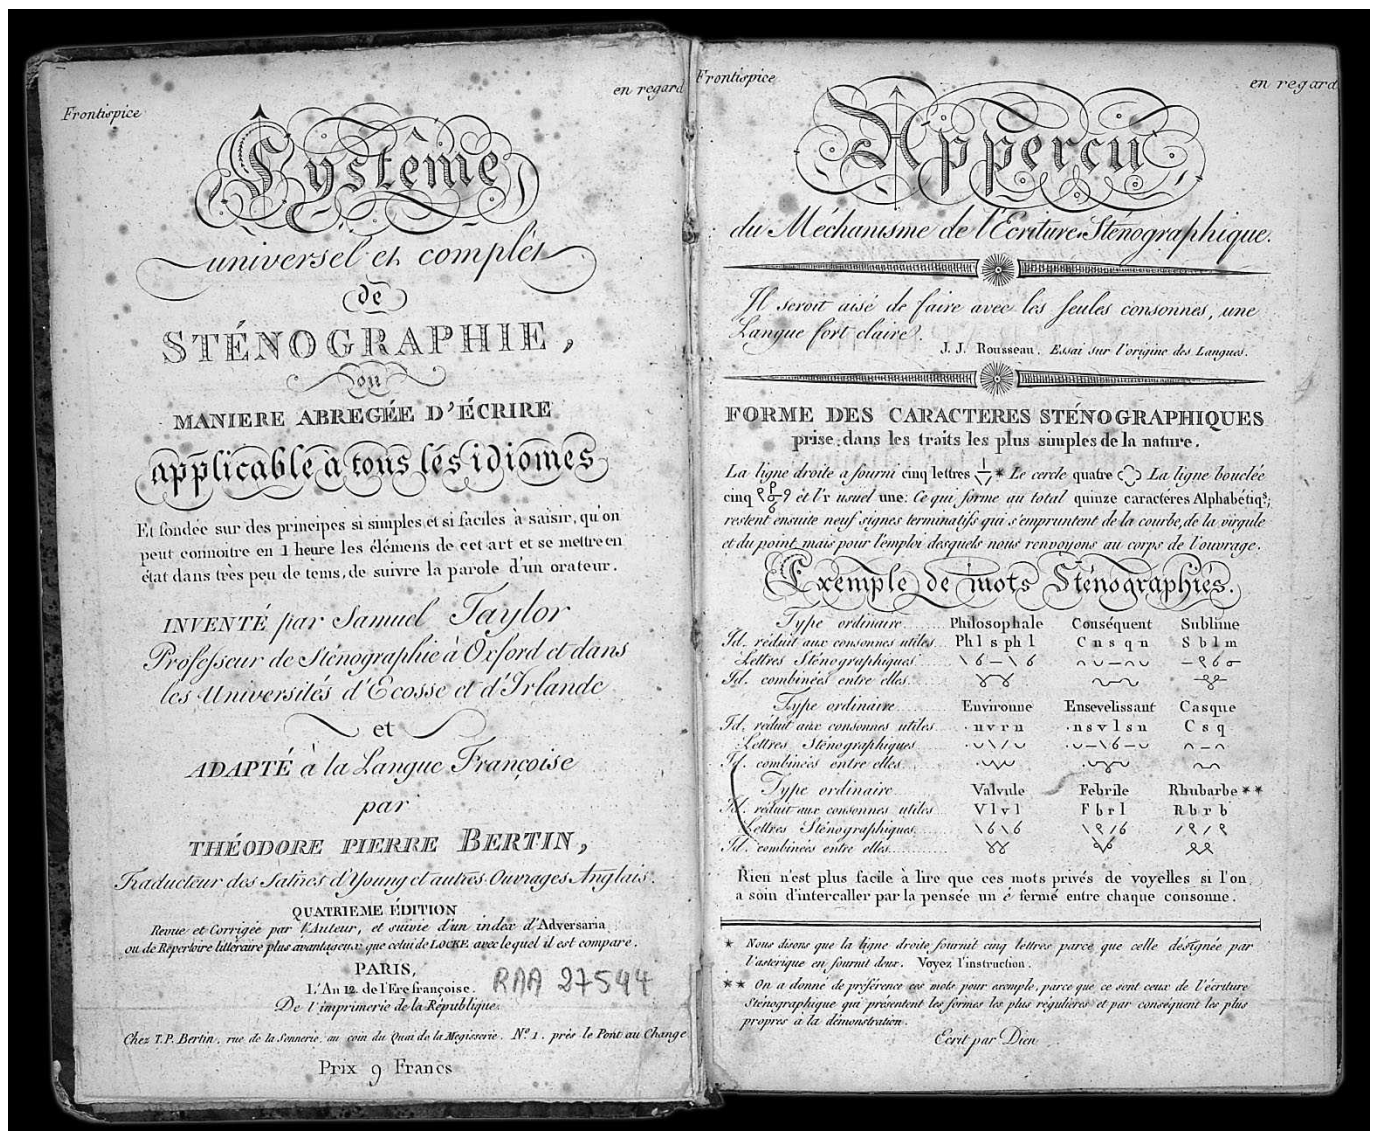 Frontispice
en regard
Systême
universel et complet
de
STÉNOGRAPHIE,
ou
MANIERE ABREGÉE D'ÉCRIRE
applicable à tous lés idiomes
Et fondée sur des principes si simples et si faciles à saisir, qu'on
peut connoitre en 1 heure les élémens de cet art et se mettre en
état dans très peu de tems, de suivre la parole d'un orateur.
INVENTÉ par Samuel Taylor
Professeur de Sténographie à Oxford et dans
les Universités d'Ecosse et d'Irlande
et
ADAPTÉ à la Langue Françoise
par
THÉODORE PIERRE BERTIN,
Traducteur des Satires d'Young et autres Ouvrages Anglais.
QUATRIEME ÉDITION
Revue et Corrigée par l'Auteur, et suivie d'un index d'Adversaria
ou de Répertoire littéraire plus avantageux que celui de LOCKE avec lequel il est comparé.
PARIS,
L'An 12 de l'Ere françoise.
RAA 27544
De l'imprimerie de la République
Chez T.P. Bertin, rue de la Sonnerie, au coin du Quai de la Megisserie. Nº 1. près le Pont au Change
Prix 9 Francs
Frontispice
en regard
Apperçu
du Méchanisme de l'Ecriture Sténographique.
Il seroit aisé de faire avec les seules consonnes, une
Langue fort claire.
J. J. Rousseau. Essai sur l'origine des Langues.
FORME DES CARACTERES STÉNOGRAPHIQUES
prise dans les traits les plus simples de la nature.
La ligne droite a fourni cinq lettres * Le cercle quatre La ligne bouclée
cinq et l'r usuel une. Ce qui forme au total quinze caracteres Alphabétiqs;
restent ensuite neuf signes terminatifs qui s'empruntent de la courbe, de la virgule
et du point, mais pour l'emploi desquels nous renvoyons au corps de l'ouvrage.
Exemple de mots Sténographiés.
Type ordinaire Philosophale Conséquent Sublime
Id. réduit aux consonnes utiles Phlsphl Cnsqn Sblm
Lettres Sténographiques
Id. combinées entre elles
Type ordinaire Environne Ensevelissant Casque
Id. réduit aux consonnes utiles .nvrn .nsvlsn Csq
Lettres Sténographiques
Id. combinées entre elles
Type ordinaire Valvule Febrile Rhubarbe **
Id. réduit aux consonnes utiles Vlvl Fbrl Rbrb
Lettres Sténographiques
Id. combinées entre elles
Rien n'est plus facile à lire que ces mots privés de voyelles si l'on
a soin d'intercaller par la pensée un é fermé entre chaque consonne.
* Nous disons que la ligne droite fournit cinq lettres parce que celle désignée par
l'asterique en fournit deux. Voyez l'instruction.
** On a donné de préférence ces mots pour exemple, parce que ce sont ceux de l'écriture
Sténographique qui présentent les formes les plus régulières et par conséquent les plus
propres à la démonstration.
Ecrit par Dien